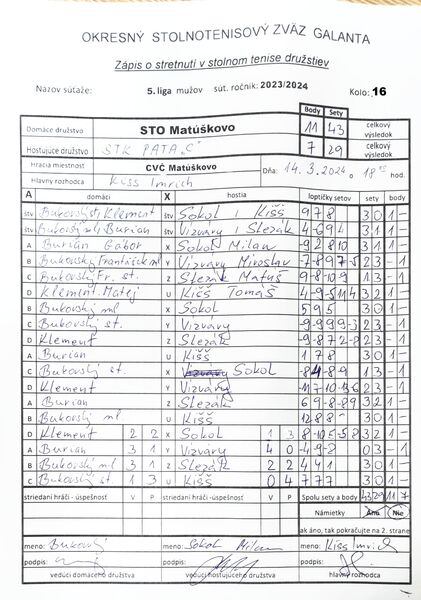 OKRESNÝ STOLNOTENISOVÝ ZVÄZ GALANTA
Zápis o stretnutí v stolnom tenise družstiev
Názov súťaže: 5. liga mužov súť. ročník: 2023/2024 Kolo: 16
Body Sety
Domáce družstvo STO Matúškovo 11 43 celkový výsledok
Hosťujúce družstvo STK PATA „C" 7 29 celkový výsledok
Hracia miestnosť CVČ Matúškovo Dňa: 14.3.2024 o 18 00 hod.
Hlavný rozhodca Kiss Imrich
A domáci X hostia loptičky setov sety body
štv Bukovský st, Klement štv Sokol i Kišš 9 7 8 3 0 1 -
štv Bukovský ml, Burian štv Vizváry i Slezák 3 1 1 -
A Burian Gabor X Sokol Milan -9 2 8 10 3 1 1 -
B Bukovský František ml Y Vizváry Miroslav 2 3 - 1
C Bukovský Fr. st. Z Slezák Matúš 9 -8 -10 -9 1 3 - 1
D Klement Matej U Kišš Tomáš 3 2 1 -
B Bukovský ml X Sokol 5 9 5 3 0 1 -
C Bukovský st. Y Vizváry 2 3 - 1
D Klement Z Slezák -9 -8 7 2 -8 2 3 - 1
A Burian U Kišš 1 7 8 3 0 1 -
C Bukovský st. X Sokol 1 3 - 1
D Klement Y Vizváry 2 3 - 1
A Burian Z Slezák 3 1 -
B Bukovský ml U Kišš 12 8 8 3 0 1 -
D Klement 2 2 X Sokol 1 3 3 2 1 -
A Burian 3 1 Y Vizváry 4 0 -4 -9 -8 0 3 - 1
B Bukovský ml 3 1 Z Slezák 2 2 4 4 1 3 0 1 -
C Bukovský st 1 3 U Kišš 0 4 7 7 7 3 0 1 -
striedaní hráči - úspešnosť V P striedaní hráči - úspešnosť V P Spolu sety a body 43 29 11 7
Námietky Áno Nie
ak áno, tak pokračujte na 2. strane
meno: Bukovský meno: Sokol Milan meno: Kiss Imrich
podpis: podpis: podpis:
vedúci domáceho družstva vedúci hosťujúceho družstva hlavný rozhodca